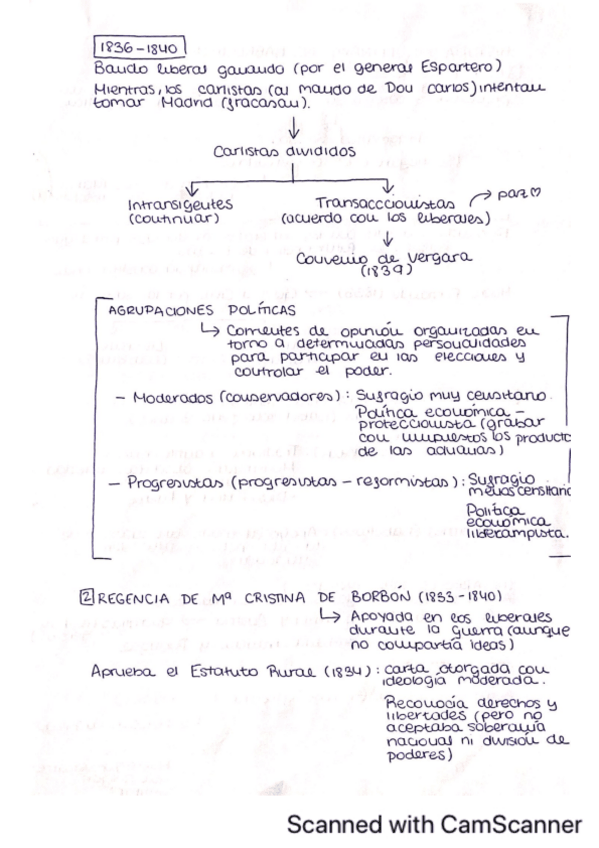 1836-1840
Bando liberal ganando (por el general Espartero)
Mientras, los carlistas (al mando de Don Carlos) intentan
tomar Madrid (fracasan).
Carlistas divididos
Intransigentes
(continuar)
Transaccionistas → paz♡
(acuerdo con los liberales)
Convenio de Vergara
(1839)
AGRUPACIONES POLÍTICAS
↳ Corrientes de opinión organizadas en
torno a determinadas personalidades
para participar en las elecciones y
controlar el poder.
- Moderados (conservadores): Sufragio muy censitario.
Política económica -
proteccionista (grabar
con impuestos los producto
de las aduanas)
- Progresistas (progresistas - reformistas): Sufragio
menos censitario
Política
económica
librecampista.
2 REGENCIA DE Mª CRISTINA DE BORBÓN (1833-1840)
↳ Apoyada en los liberales
durante la guerra (aunque
no compartía ideas)
Aprueba el Estatuto Rural (1834): carta otorgada con
ideología moderada.
Reconocía derechos y
libertades (pero no
aceptaba soberanía
nacional ni división de
poderes)
Scanned with CamScanner